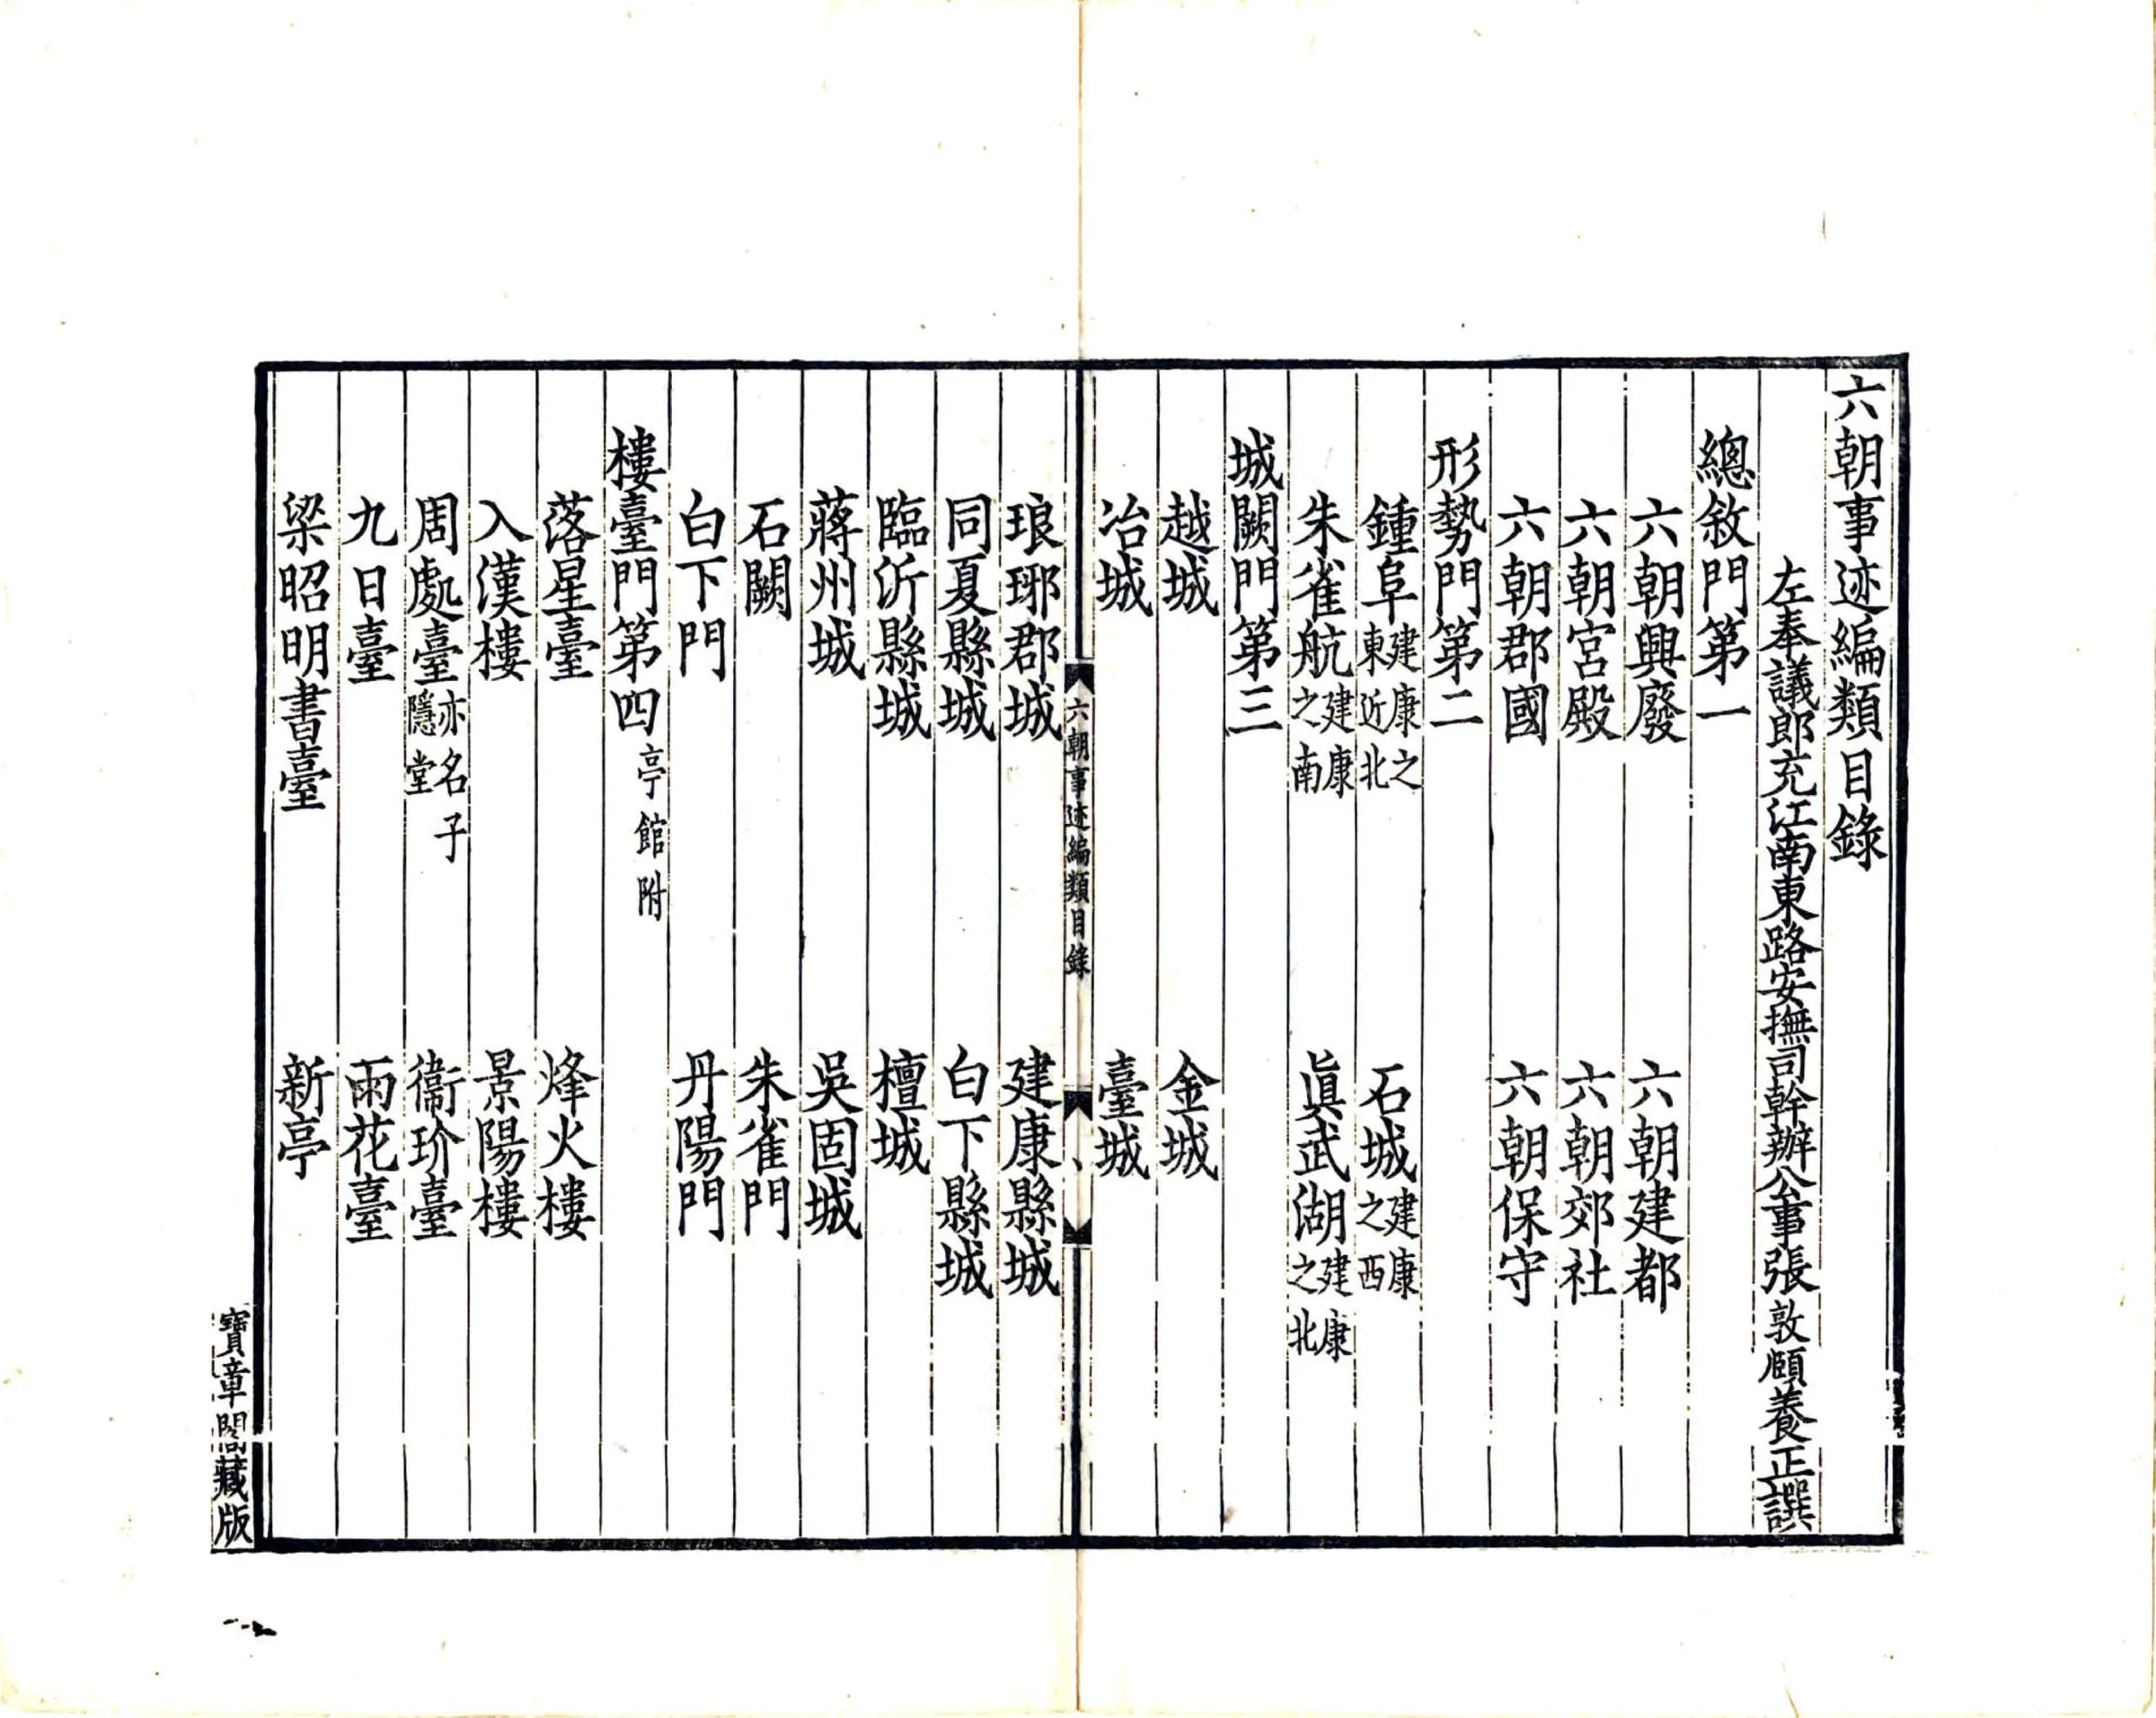 六朝事迹編類目錄
左奉議郎充江南東路安撫司幹辦公事張敦頤養正譔
總敘門第一
六朝興廢　六朝建都
六朝宮殿　六朝郊社
六朝郡國　六朝保守
形勢門第二
鍾阜建康之東近北　石城建康之西
朱雀航建康之南　眞武湖建康之北
城闕門第三
越城　金城
冶城　臺城
六朝事迹編類目錄
琅琊郡城　建康縣城
同夏縣城　白下縣城
臨沂縣城　檀城
蔣州城　吳固城
石闕　朱雀門
白下門　丹陽門
樓臺門第四亭館附
落星臺　烽火樓
入漢樓　景陽樓
周處臺亦名子隱堂　衞玠臺
九日臺　雨花臺
梁昭明書臺　新亭
寶章閣藏版